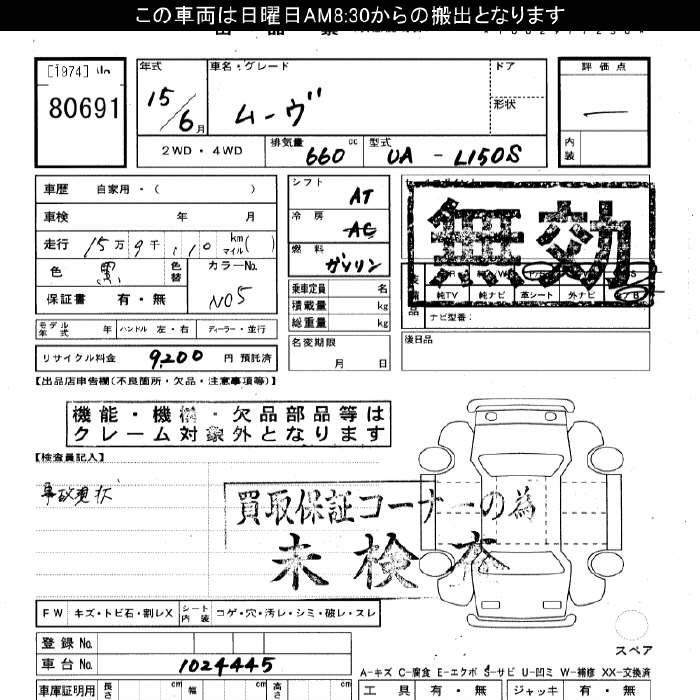 この車両は日曜日AM8:30からの搬出となります
[1974]
80691
年式
15/6月
車名・グレード
ムーヴ
ドア
形状
評価点
内装
2WD・4WD
排気量
660 cc
型式
UA - L150S
車歴 自家用・( )
車検 年 月
走行 15万9千110 km マイル( )
色 黒 色替 カラーNo. N05
保証書 有・無
モデル年式 年 ハンドル 左・右 ディーラー・並行
リサイクル料金 9,200 円 預託済
シフト AT
冷房 AC
燃料 ガソリン
乗車定員 名
積載量 kg
総重量 kg
名変期限
月 日
無効
純TV 純ナビ 革シート 外ナビ
ナビ型番:
後日品
【出品店申告欄(不良箇所・欠品・注意事項等)】
機能・機構・欠品部品等は
クレーム対象外となります
【検査員記入】
事故現状
買取保証コーナーの為
未検査
FW キズ・トビ石・割レX シート内装 コゲ・穴・汚レ・シミ・破レ・スレ
スペア
登録No.
車台No. 1024445
A-キズ C-腐食 E-エクボ S-サビ U-凹ミ W-補修 XX-交換済
車庫証明用 長さ cm 幅 cm 高さ cm
工具 有・無 ジャッキ 有・無